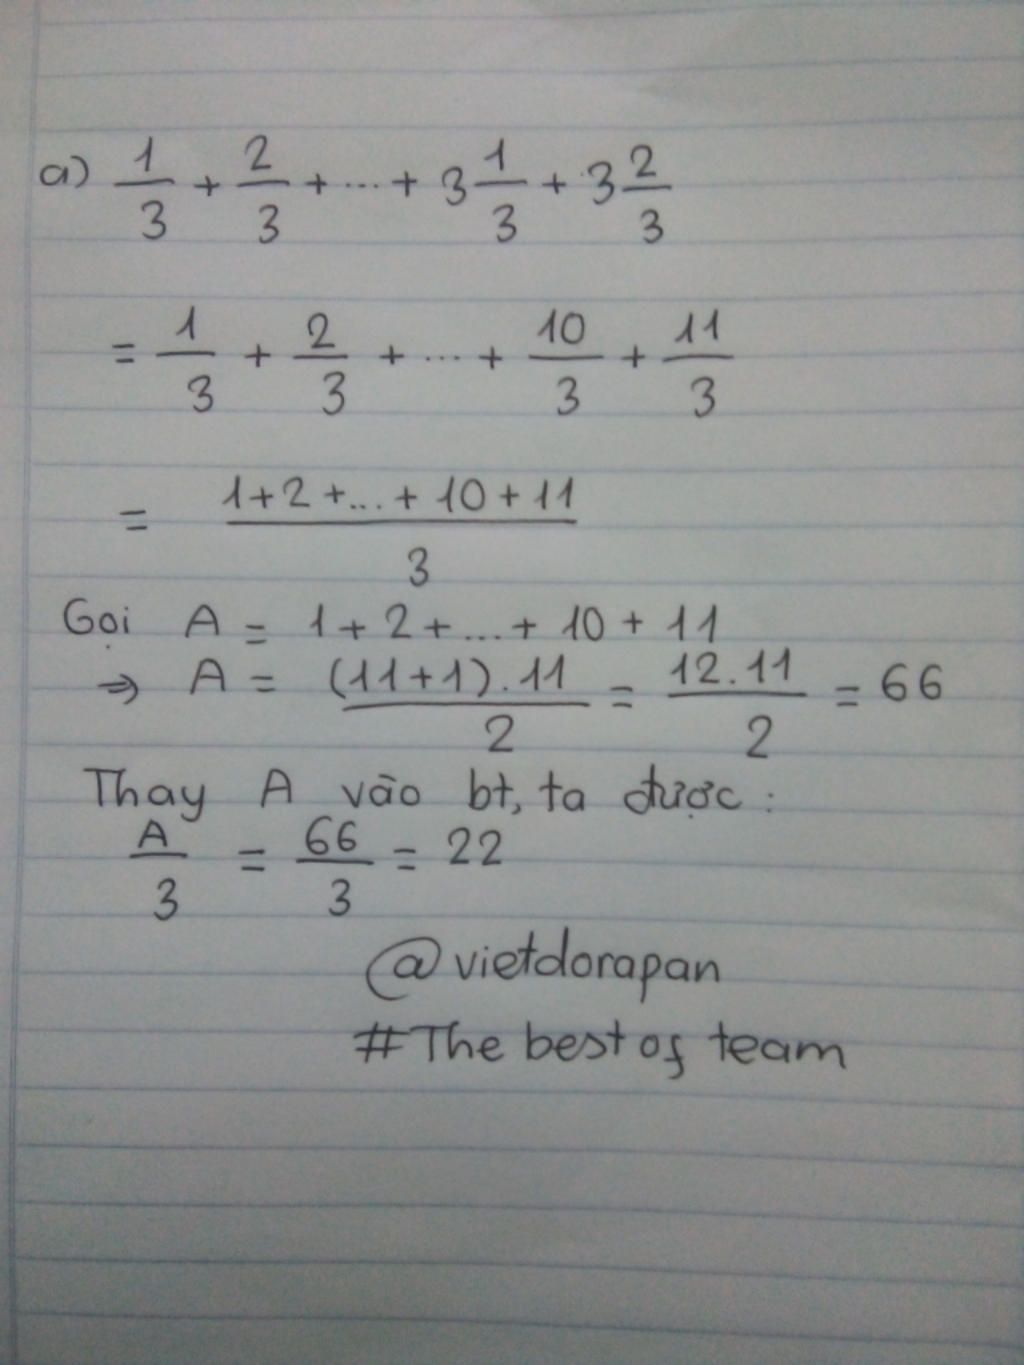 a) 1/3 + 2/3 + ... + 3 1/3 + 3 2/3
= 1/3 + 2/3 + ... + 10/3 + 11/3
= (1+2+...+10+11)/3
Gọi A = 1+2+...+10+11
⇒ A = (11+1).11/2 = 12.11/2 = 66
Thay A vào bt, ta được:
A/3 = 66/3 = 22
@vietdorapan
#The best of team